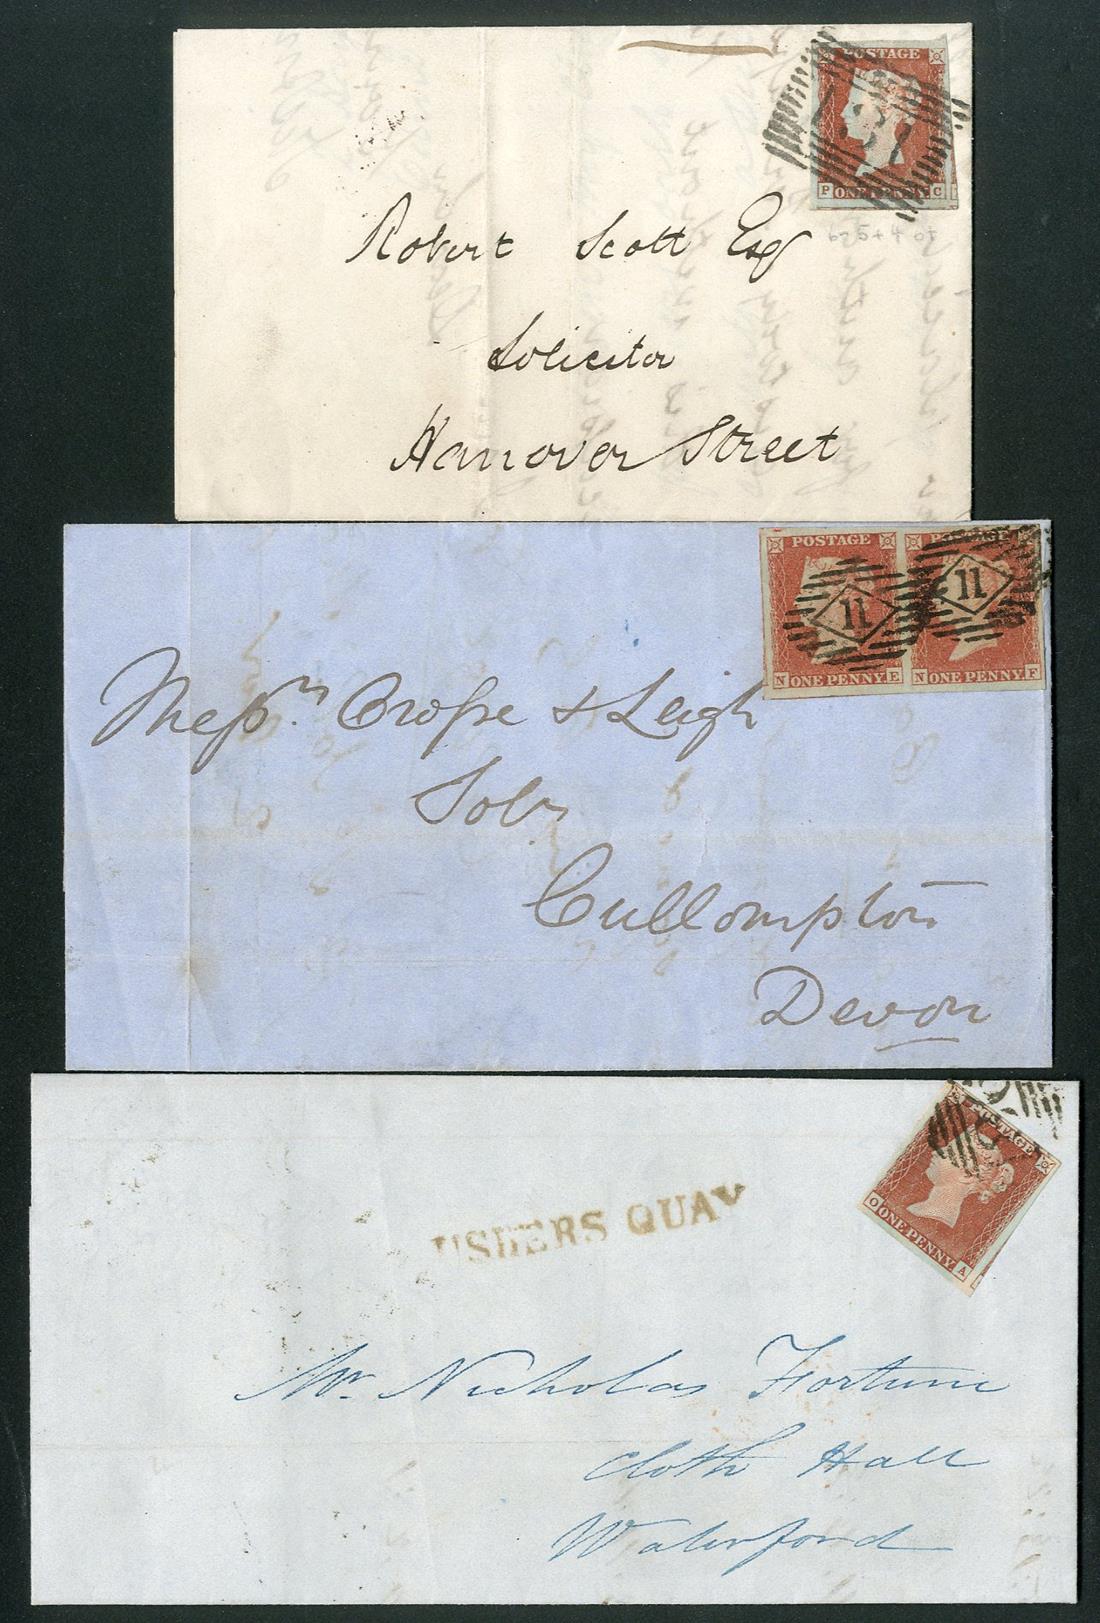 POSTAGE
131
P ONE PENNY C
Robert Scott Esq
Solicitor
Hanover Street
POSTAGE POSTAGE
11 11
N ONE PENNY E N ONE PENNY F
Messrs. Crosse & Leigh
Solrs
Cullompton
Devon
POSTAGE
O ONE PENNY A
USHERS QUAY
Mr. Nicholas Fortune
Cloth Hall
Waterford